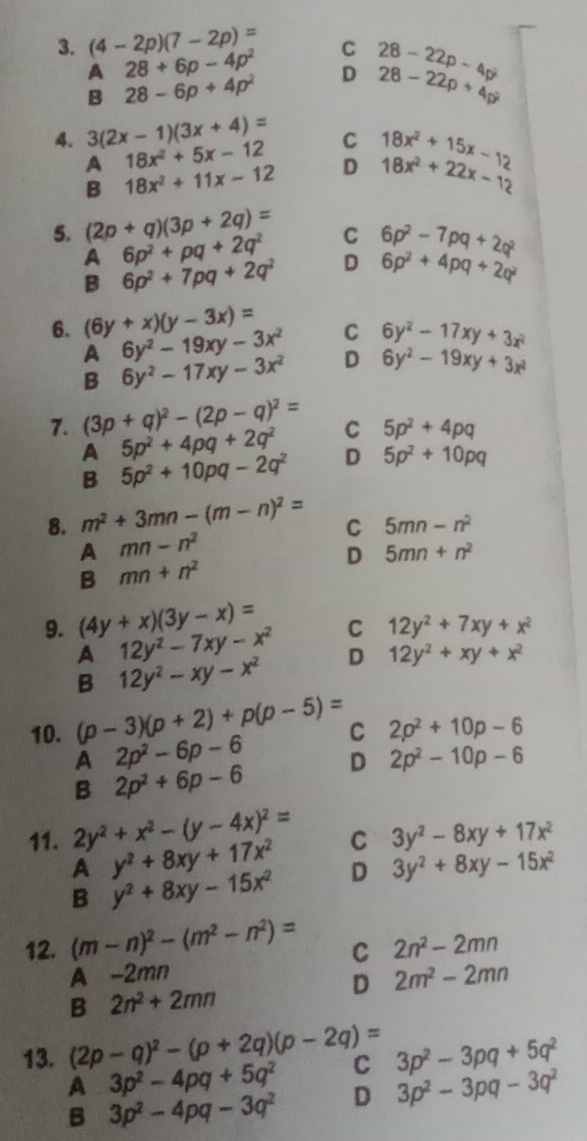 3. (4 − 2p)(7 − 2p) =
A 28 + 6p − 4p²
C 28 − 22p − 4p²
B 28 − 6p + 4p²
D 28 − 22p + 4p²
4. 3(2x − 1)(3x + 4) =
A 18x² + 5x − 12
C 18x² + 15x − 12
B 18x² + 11x − 12
D 18x² + 22x − 12
5. (2p + q)(3p + 2q) =
A 6p² + pq + 2q²
C 6p² − 7pq + 2q²
B 6p² + 7pq + 2q²
D 6p² + 4pq + 2q²
6. (6y + x)(y − 3x) =
A 6y² − 19xy − 3x²
C 6y² − 17xy + 3x²
B 6y² − 17xy − 3x²
D 6y² − 19xy + 3x²
7. (3p + q)² − (2p − q)² =
A 5p² + 4pq + 2q²
C 5p² + 4pq
B 5p² + 10pq − 2q²
D 5p² + 10pq
8. m² + 3mn − (m − n)² =
A mn − n²
C 5mn − n²
B mn + n²
D 5mn + n²
9. (4y + x)(3y − x) =
A 12y² − 7xy − x²
C 12y² + 7xy + x²
B 12y² − xy − x²
D 12y² + xy + x²
10. (p − 3)(p + 2) + p(p − 5) =
A 2p² − 6p − 6
C 2p² + 10p − 6
B 2p² + 6p − 6
D 2p² − 10p − 6
11. 2y² + x² − (y − 4x)² =
A y² + 8xy + 17x²
C 3y² − 8xy + 17x²
B y² + 8xy − 15x²
D 3y² + 8xy − 15x²
12. (m − n)² − (m² − n²) =
A −2mn
C 2n² − 2mn
B 2n² + 2mn
D 2m² − 2mn
13. (2p − q)² − (p + 2q)(p − 2q) =
A 3p² − 4pq + 5q²
C 3p² − 3pq + 5q²
B 3p² − 4pq − 3q²
D 3p² − 3pq − 3q²